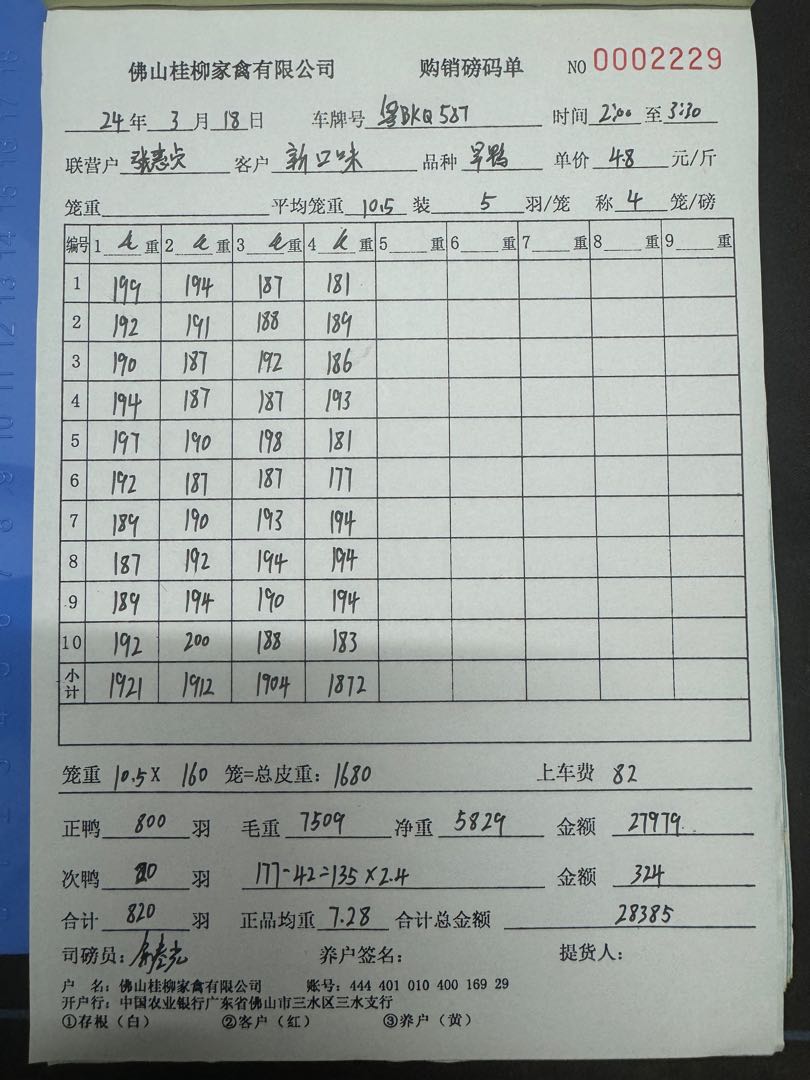 佛山桂柳家禽有限公司 购销磅码单 NO 0002229
24年 3月 18日 车牌号 粤BKQ587 时间 2:00 至 3:30
联营户 张惠贞 客户 新口味 品种 旱鸭 单价 4.8 元/斤
笼重 平均笼重 10.5 装 5 羽/笼 称 4 笼/磅
编号 1 重 2 重 3 重 4 重 5 重 6 重 7 重 8 重 9 重
1 199 194 187 181
2 192 191 188 189
3 190 187 192 186
4 194 187 187 193
5 197 190 198 181
6 192 187 187 177
7 189 190 193 194
8 187 192 194 194
9 189 194 190 194
10 192 200 188 183
小计 1921 1912 1904 1872
笼重 10.5 × 160 笼=总皮重: 1680 上车费 82
正鸭 800 羽 毛重 7509 净重 5829 金额 27979
次鸭 20 羽 177-42=135×2.4 金额 324
合计 820 羽 正品均重 7.28 合计总金额 28385
司磅员: 养户签名: 提货人:
户 名: 佛山桂柳家禽有限公司 账号: 444 401 010 400 169 29
开户行: 中国农业银行广东省佛山市三水区三水支行
①存根（白） ②客户（红） ③养户（黄）